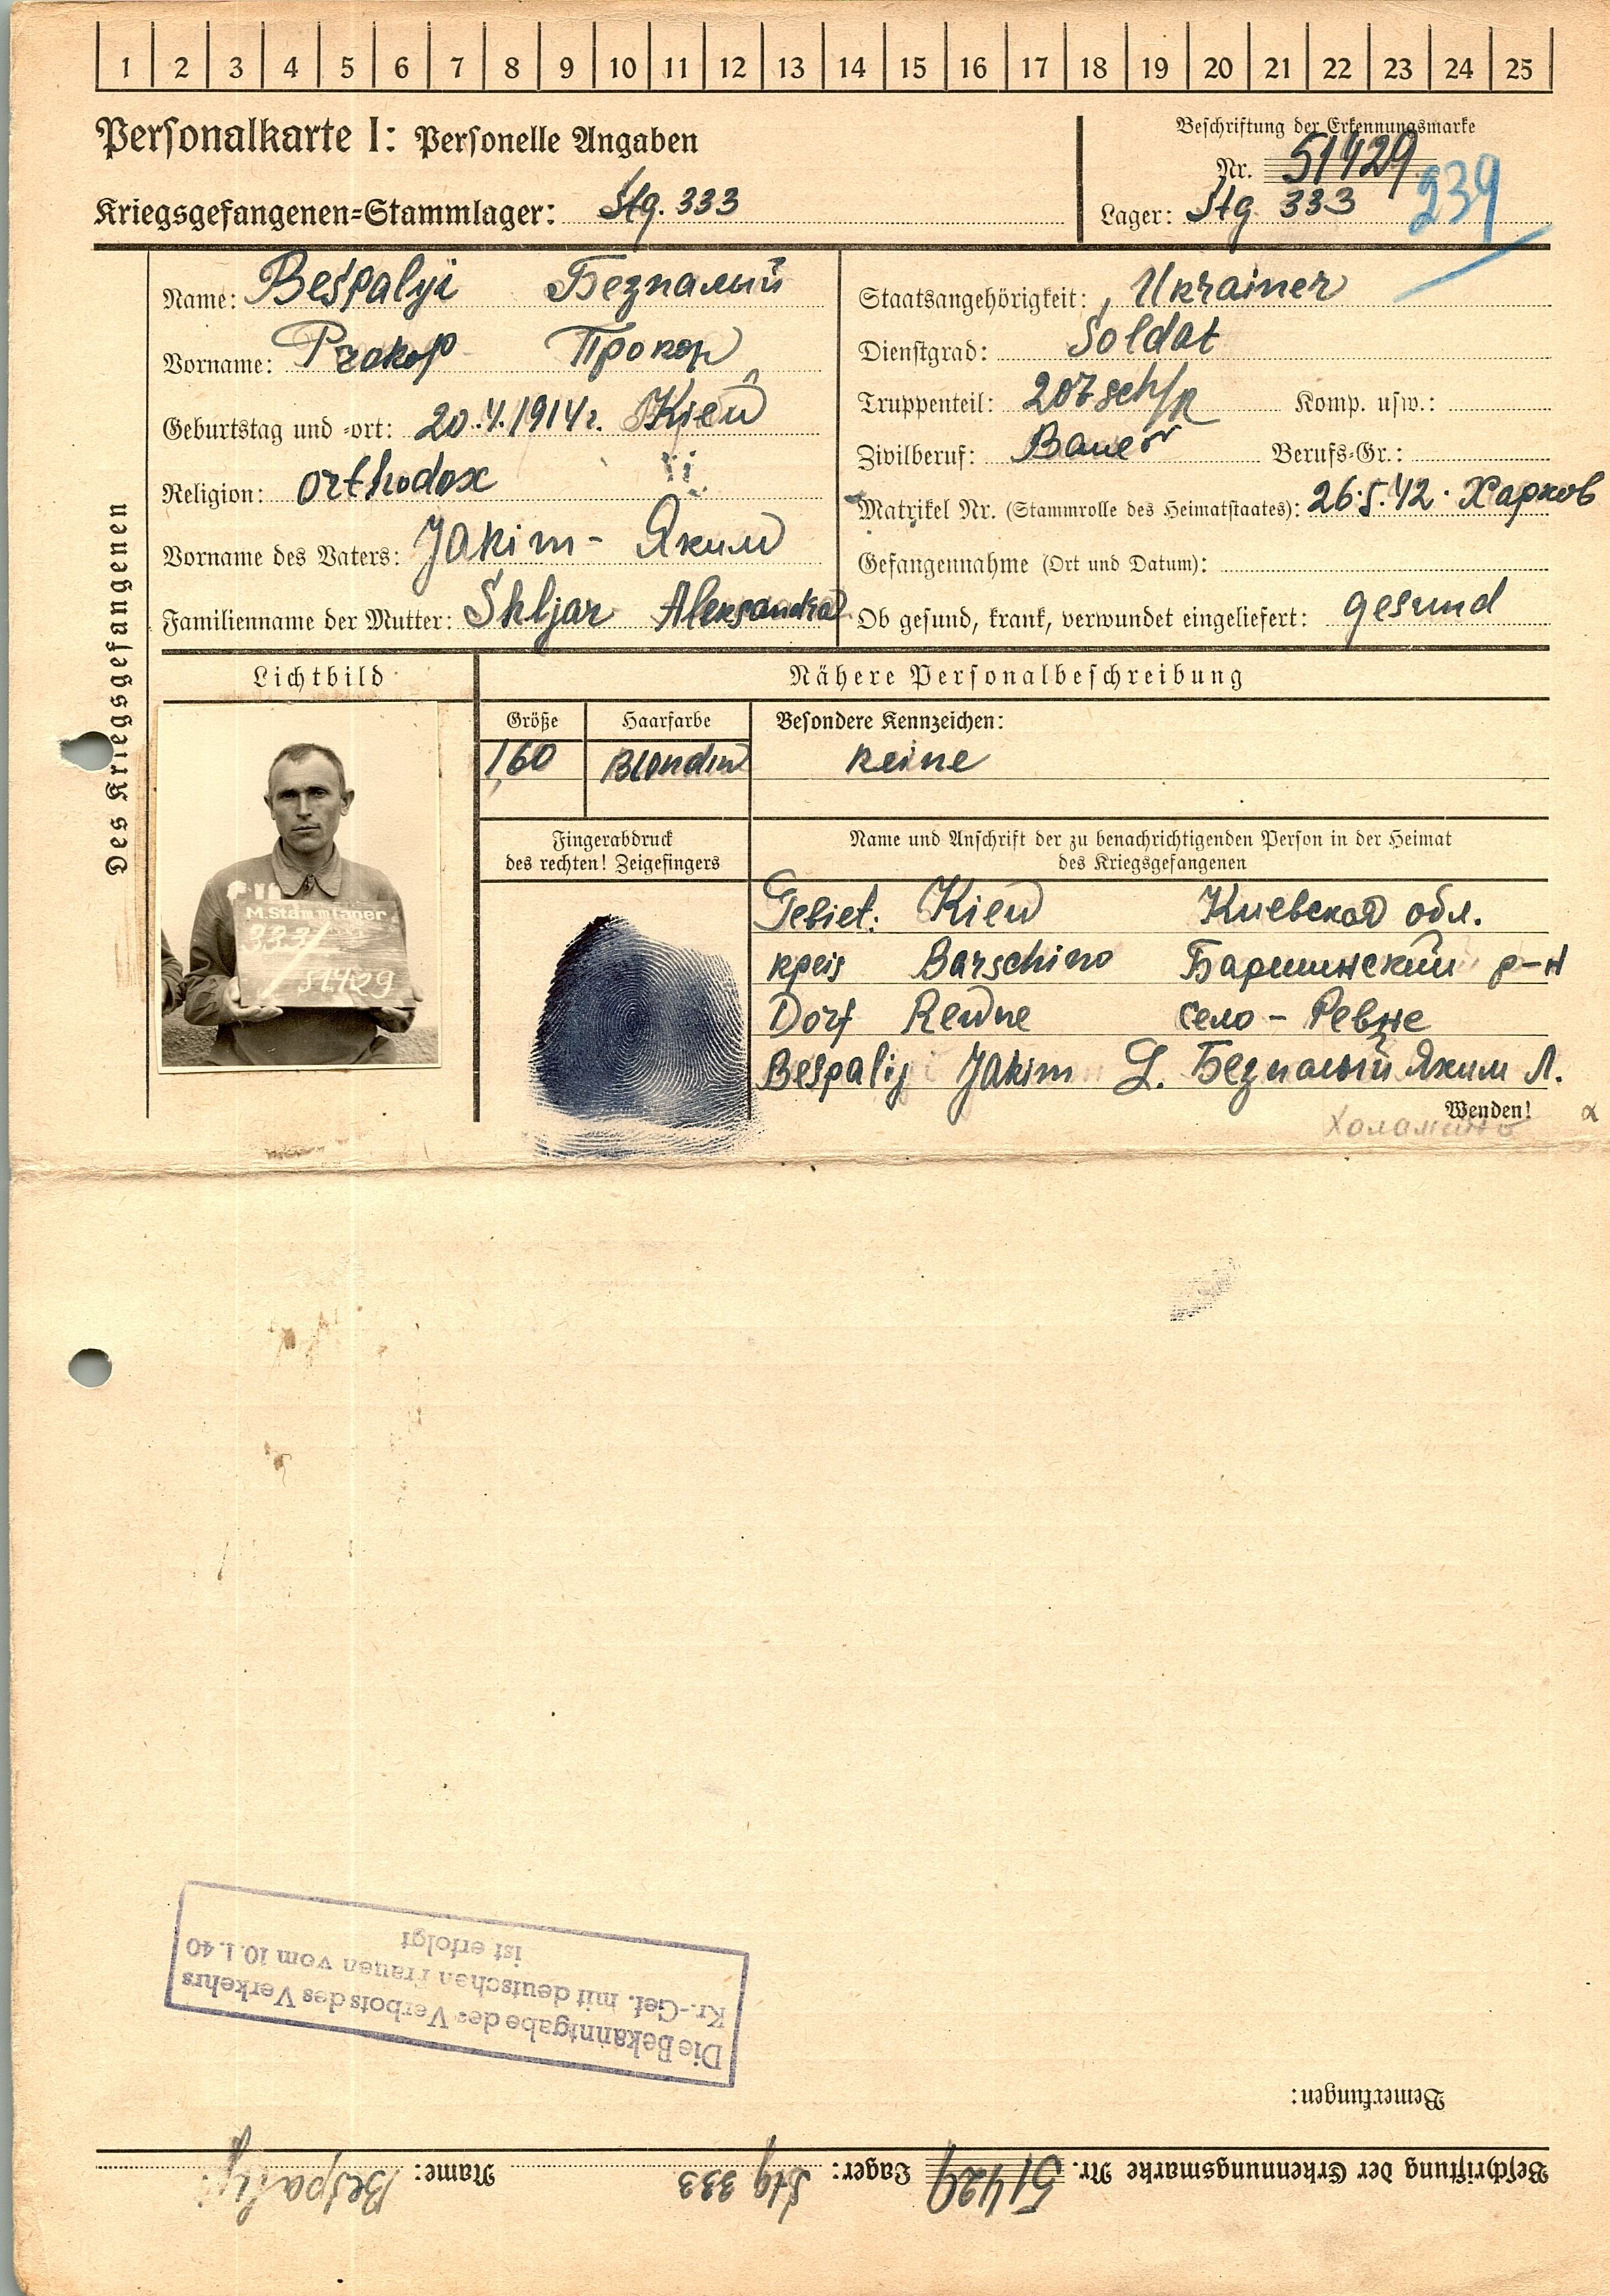 1 2 3 4 5 6 7 8 9 10 11 12 13 14 15 16 17 18 19 20 21 22 23 24 25
Personalkarte I: Personelle Angaben
Kriegsgefangenen=Stammlager: Stg. 333
Beschriftung der Erkennungsmarke
Nr. 51429
Lager: Stg 333
239
Des Kriegsgefangenen
Name: Bespalyi Безпалий
Vorname: Prokop Прокоп
Geburtstag und =ort: 20. 1914 г. Kiew
Religion: orthodox
Vorname des Vaters: Jakim - Яким
Familienname der Mutter: Shljar Aleksandra
Staatsangehörigkeit: Ukrainer
Dienstgrad: Soldat
Truppenteil: 207 sch/R Komp. usw.:
Zivilberuf: Bauer Berufs=Gr.:
Matrikel Nr. (Stammrolle des Heimatstaates): 26.5.42. Харков
Gefangennahme (Ort und Datum):
Ob gesund, krank, verwundet eingeliefert: gesund
Lichtbild
M.Stammlager
333/
51429
Nähere Personalbeschreibung
Größe Haarfarbe Besondere Kennzeichen:
1,60 Blondin keine
Fingerabdruck
des rechten! Zeigefingers
Name und Anschrift der zu benachrichtigenden Person in der Heimat
des Kriegsgefangenen
Gebiet: Kiew Киевская обл.
крeis Barschino Баришинский р-н
Dorf Rewne село - Ревне
Bespalij Jakim L. Безпалый Яким Л.
Wenden!
Die Bekanntgabe des Verbots des Verkehrs
Kr.-Gef. mit deutschen Frauen vom 10.1.40
ist erfolgt
Bemerkungen:
Beschriftung der Erkennungsmarke Nr. 51429 Lager: Stg 333 Name: Bespalyj